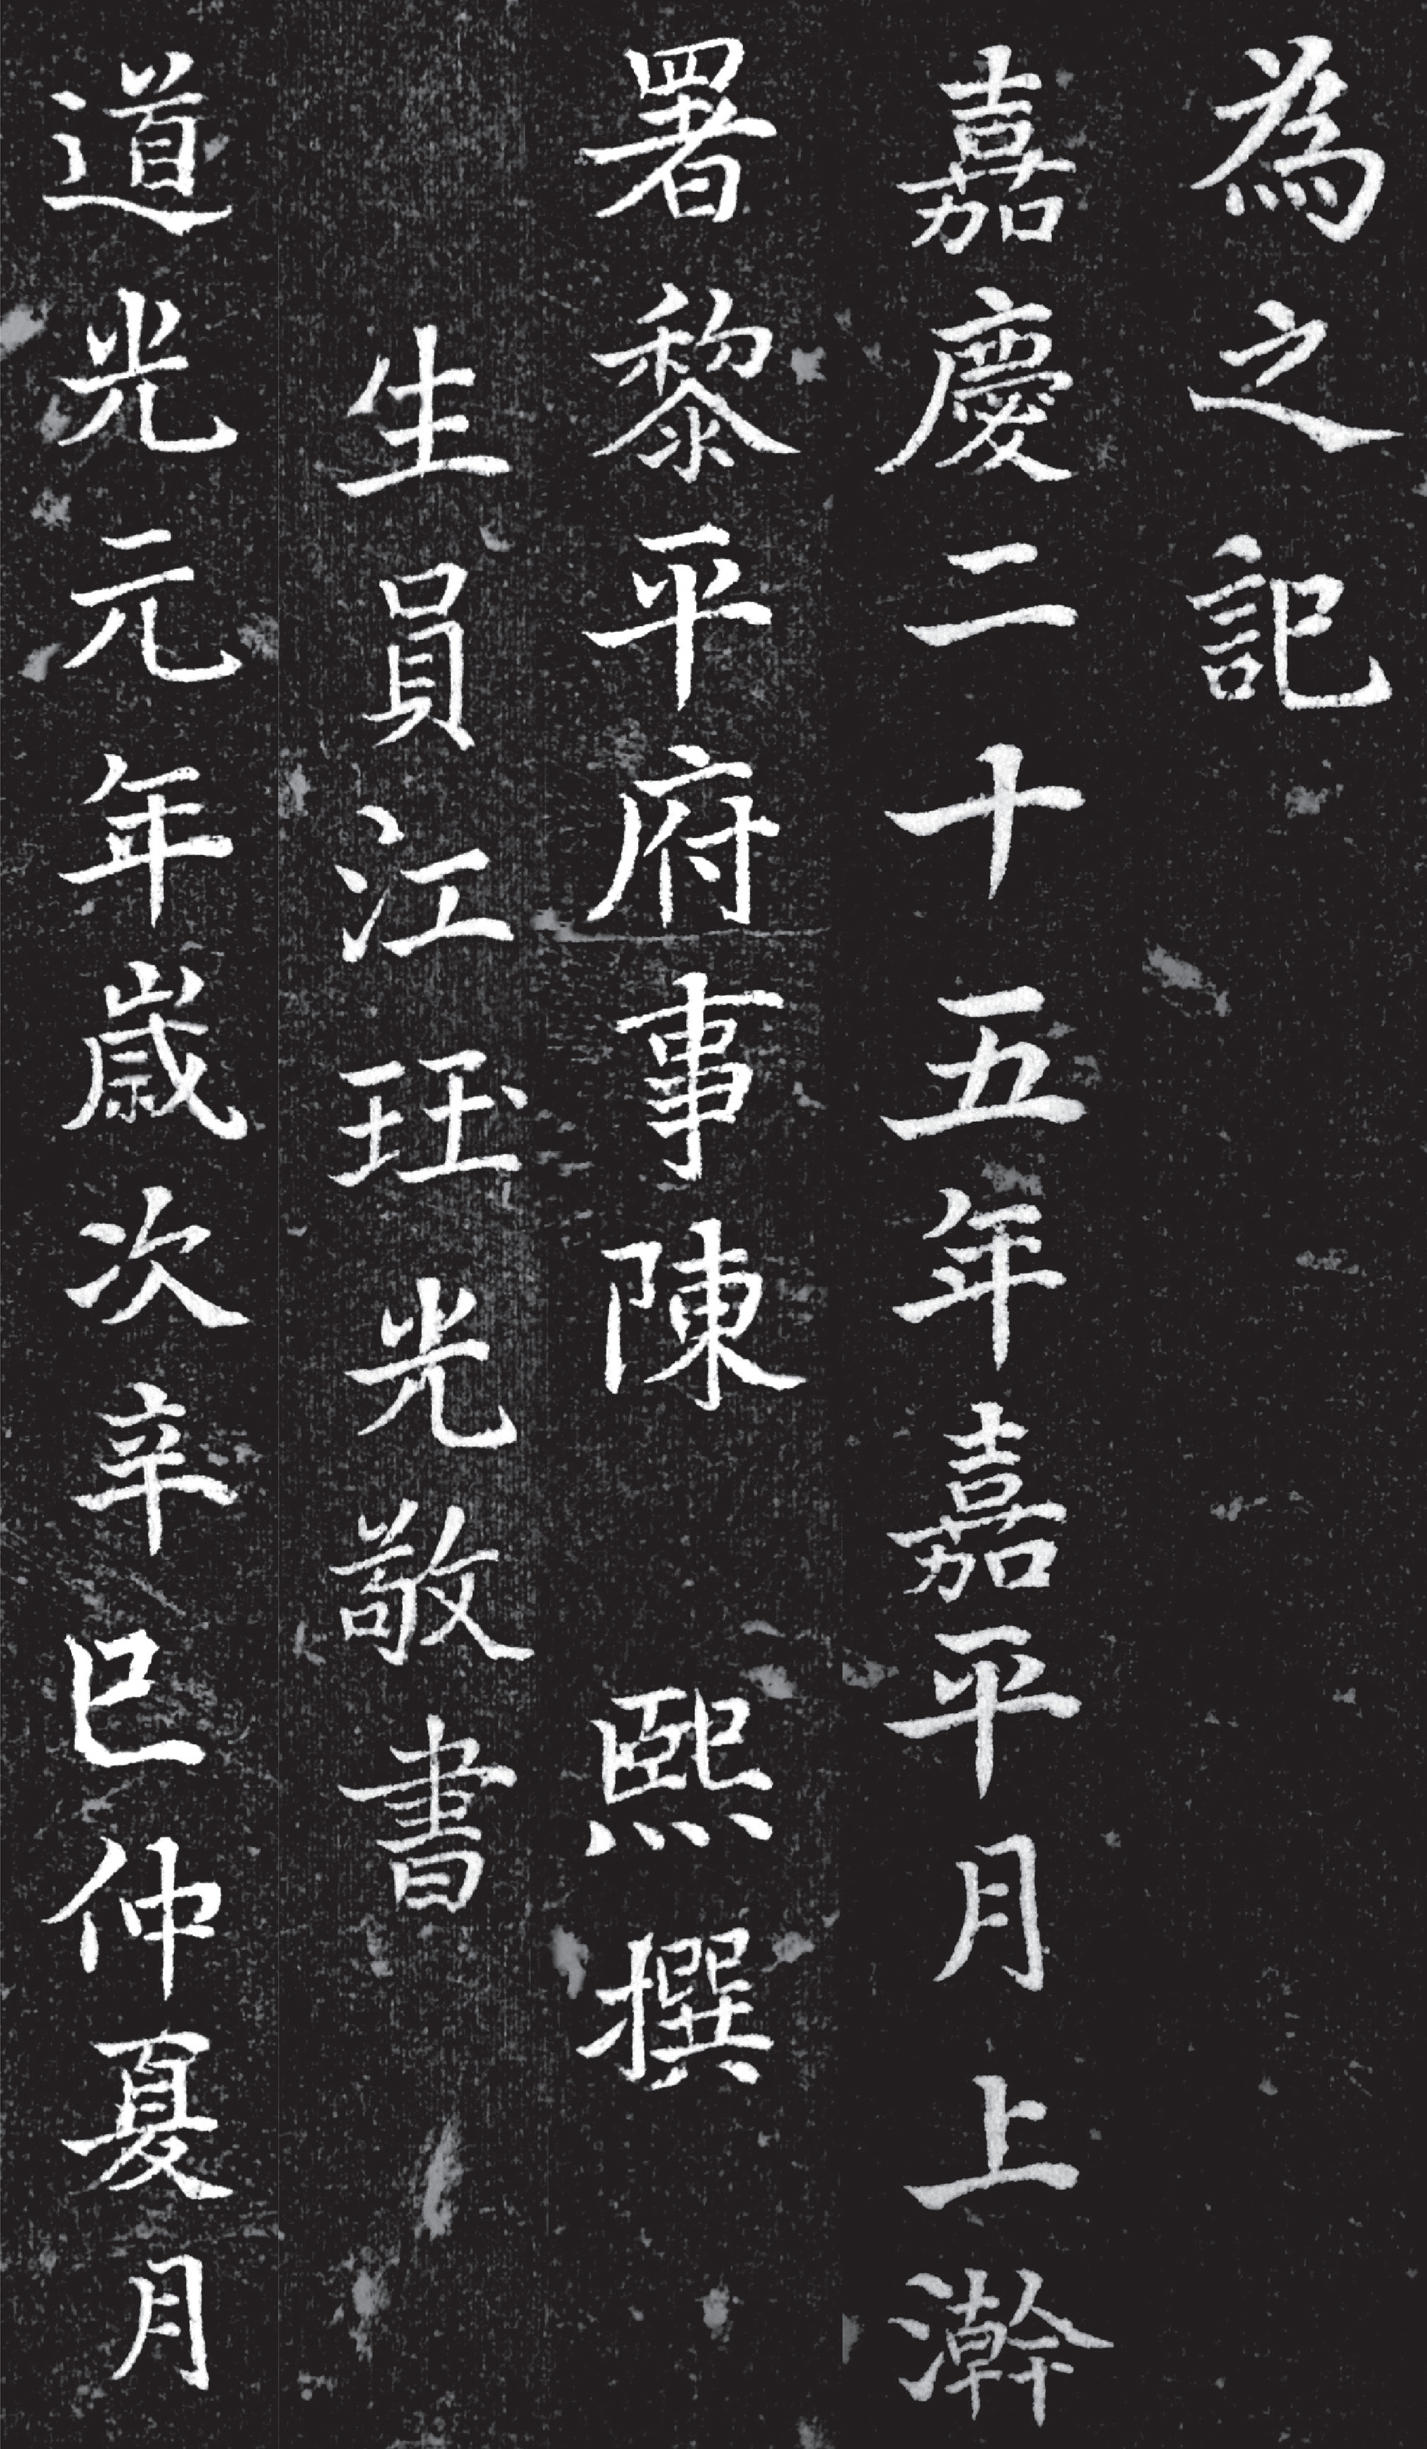 為之記
嘉慶二十五年嘉平月上澣
署黎平府事陳熙撰
生員江玨光敬書
道光元年歲次辛巳仲夏月